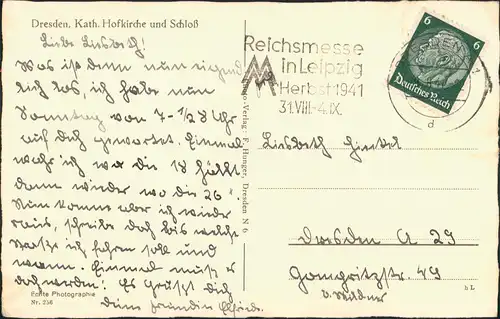 Dresden, Kath. Hofkirche und Schloß
Liebe Liesbeth!
Was ist denn nun eigent
lich los, ich habe nun
Sonntag von 7-1/28 Uhr
auf dich gewartet. Einmal
wahr ich wo die 18 hällt
dann wieder wo die 26.
Nun komme aber ich wieder
raus, schreibe doch bis welche
ich fahren soll und
wann. Einmal muß es
doch werden! Es grüßt dich
deine Freundin Elfriede.
Echte Photographie
Nr. 256
Verlag: F. Hunger, Dresden N 6
Reichsmesse
in Leipzig
Herbst 1941
31.VIII.-4.IX.
6 6
Deutsches Reich
d
Liesbeth
Dresden A 29
Gompitzstr. 49
b L